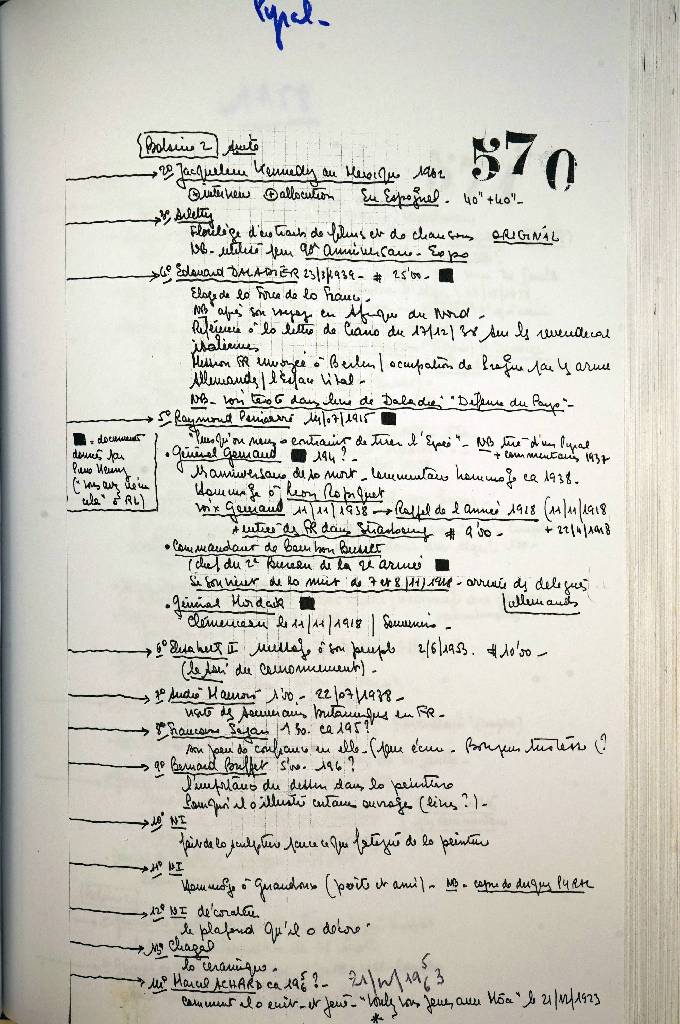 Pyral -
Bobine 2 suite
570
2º Jacqueline Kennedy au Mexique 1962
interview allocution En Espagnol - 40" + 40" -
3º Arletty
Florilège d'extraits de films et de chansons ORIGINAL
NB - utilisé pour 90º Anniversaire - Expo
4º Edouard DALADIER 23/3/1939 - # 25'00 -
Eloge de la Force de la France -
NB après son voyage en Afrique du Nord -
Référence à la lettre de Ciano du 17/12/38 sur les revendicat
italiennes
Mission FR envoyée à Berlin / occupation de Prague par ls armée
Allemandes / l'Espace Vital -
NB - voir texte dans livre de Daladier "Défense du Pays" -
5º Raymond Poincaré 14/07/1915
"Puisqu'on nous a contraint de tirer l'Epée" - NB tiré d'un Pyral
+ commentaires 1937
■ = document
donné par
• Général Gouraud 194 ?
anniversaire de sa mort - commentaire hommage ca 1938 -
Hommage à Léon
voix Gouraud 11/11/1938 → Rappel de l'Année 1918 (11/11/1918
+ entrée des FR dans Strasbourg # 9'00 - + 22/11/1918
• Commandant de Bourbon Busset
(chef du 2e Bureau de la 2e armée
Se souvient de la nuit de 7 et 8/11/1918 - arrivée ds délégués
allemands
• Général Mordacq
Clémenceau le 11/11/1918 / Souvenirs -
6º Elisabeth II message à son peuple 2/6/1953 - # 10'00 -
(le soir du couronnement) -
7º André Maurois 1'00 - 22/07/1938 -
visite ds souverains britanniques en FR -
8º Françoise Sagan 1'30 - ca 195 ?
son peu de confiance en elle - (pour écrire - Bonjour tristesse (?
9º Bernard Buffet 5'00 - 196 ?
l'importance du dessin dans la peinture
Pourquoi il a illustré certains ouvrages (livres ?) -
10º NI
fait de la sculpture parce que fatigué de la peinture
11º NI
Hommage à (poète et ami) - NB - copie de disques PYRAL
12º NI décorateur
le plafond qu'il a décoré -
13º Chagal
la céramique -
14º Marcel ACHARD ca 196 ? - 21/11/1963
comment il a écrit - et joué - "Voulez vous jouer avec Moa" le 21/11/1923